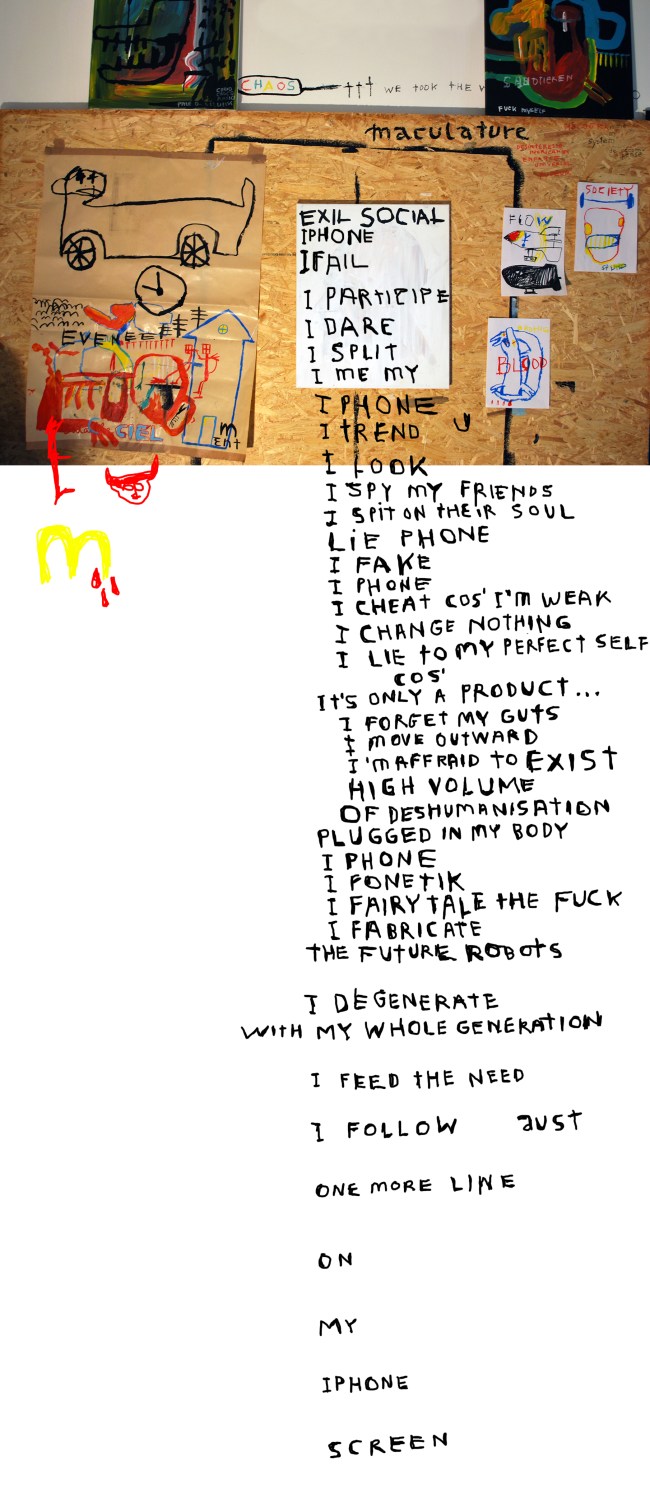 CHAOS ††† WE TOOK THE
FUCK MYSELF
maculature
SOCIETY
FLOW
BLOOD
CIEL
EXIL SOCIAL
IPHONE
IFAIL
I PARTICIPE
I DARE
I SPLIT
I ME MY
I PHONE
I TREND
I LOOK
I SPY MY FRIENDS
I SPIT ON THEIR SOUL
LIE PHONE
I FAKE
I PHONE
I CHEAT COS' I'M WEAK
I CHANGE NOTHING
I LIE TO MY PERFECT SELF
COS'
IT'S ONLY A PRODUCT...
I FORGET MY GUTS
I MOVE OUTWARD
I'M AFFRAID TO EXIST
HIGH VOLUME
OF DESHUMANISATION
PLUGGED IN MY BODY
I PHONE
I FONETIK
I FAIRY TALE THE FUCK
I FABRICATE
THE FUTURE ROBOTS
I DEGENERATE
WITH MY WHOLE GENERATION
I FEED THE NEED
I FOLLOW JUST
ONE MORE LINE
ON
MY
IPHONE
SCREEN